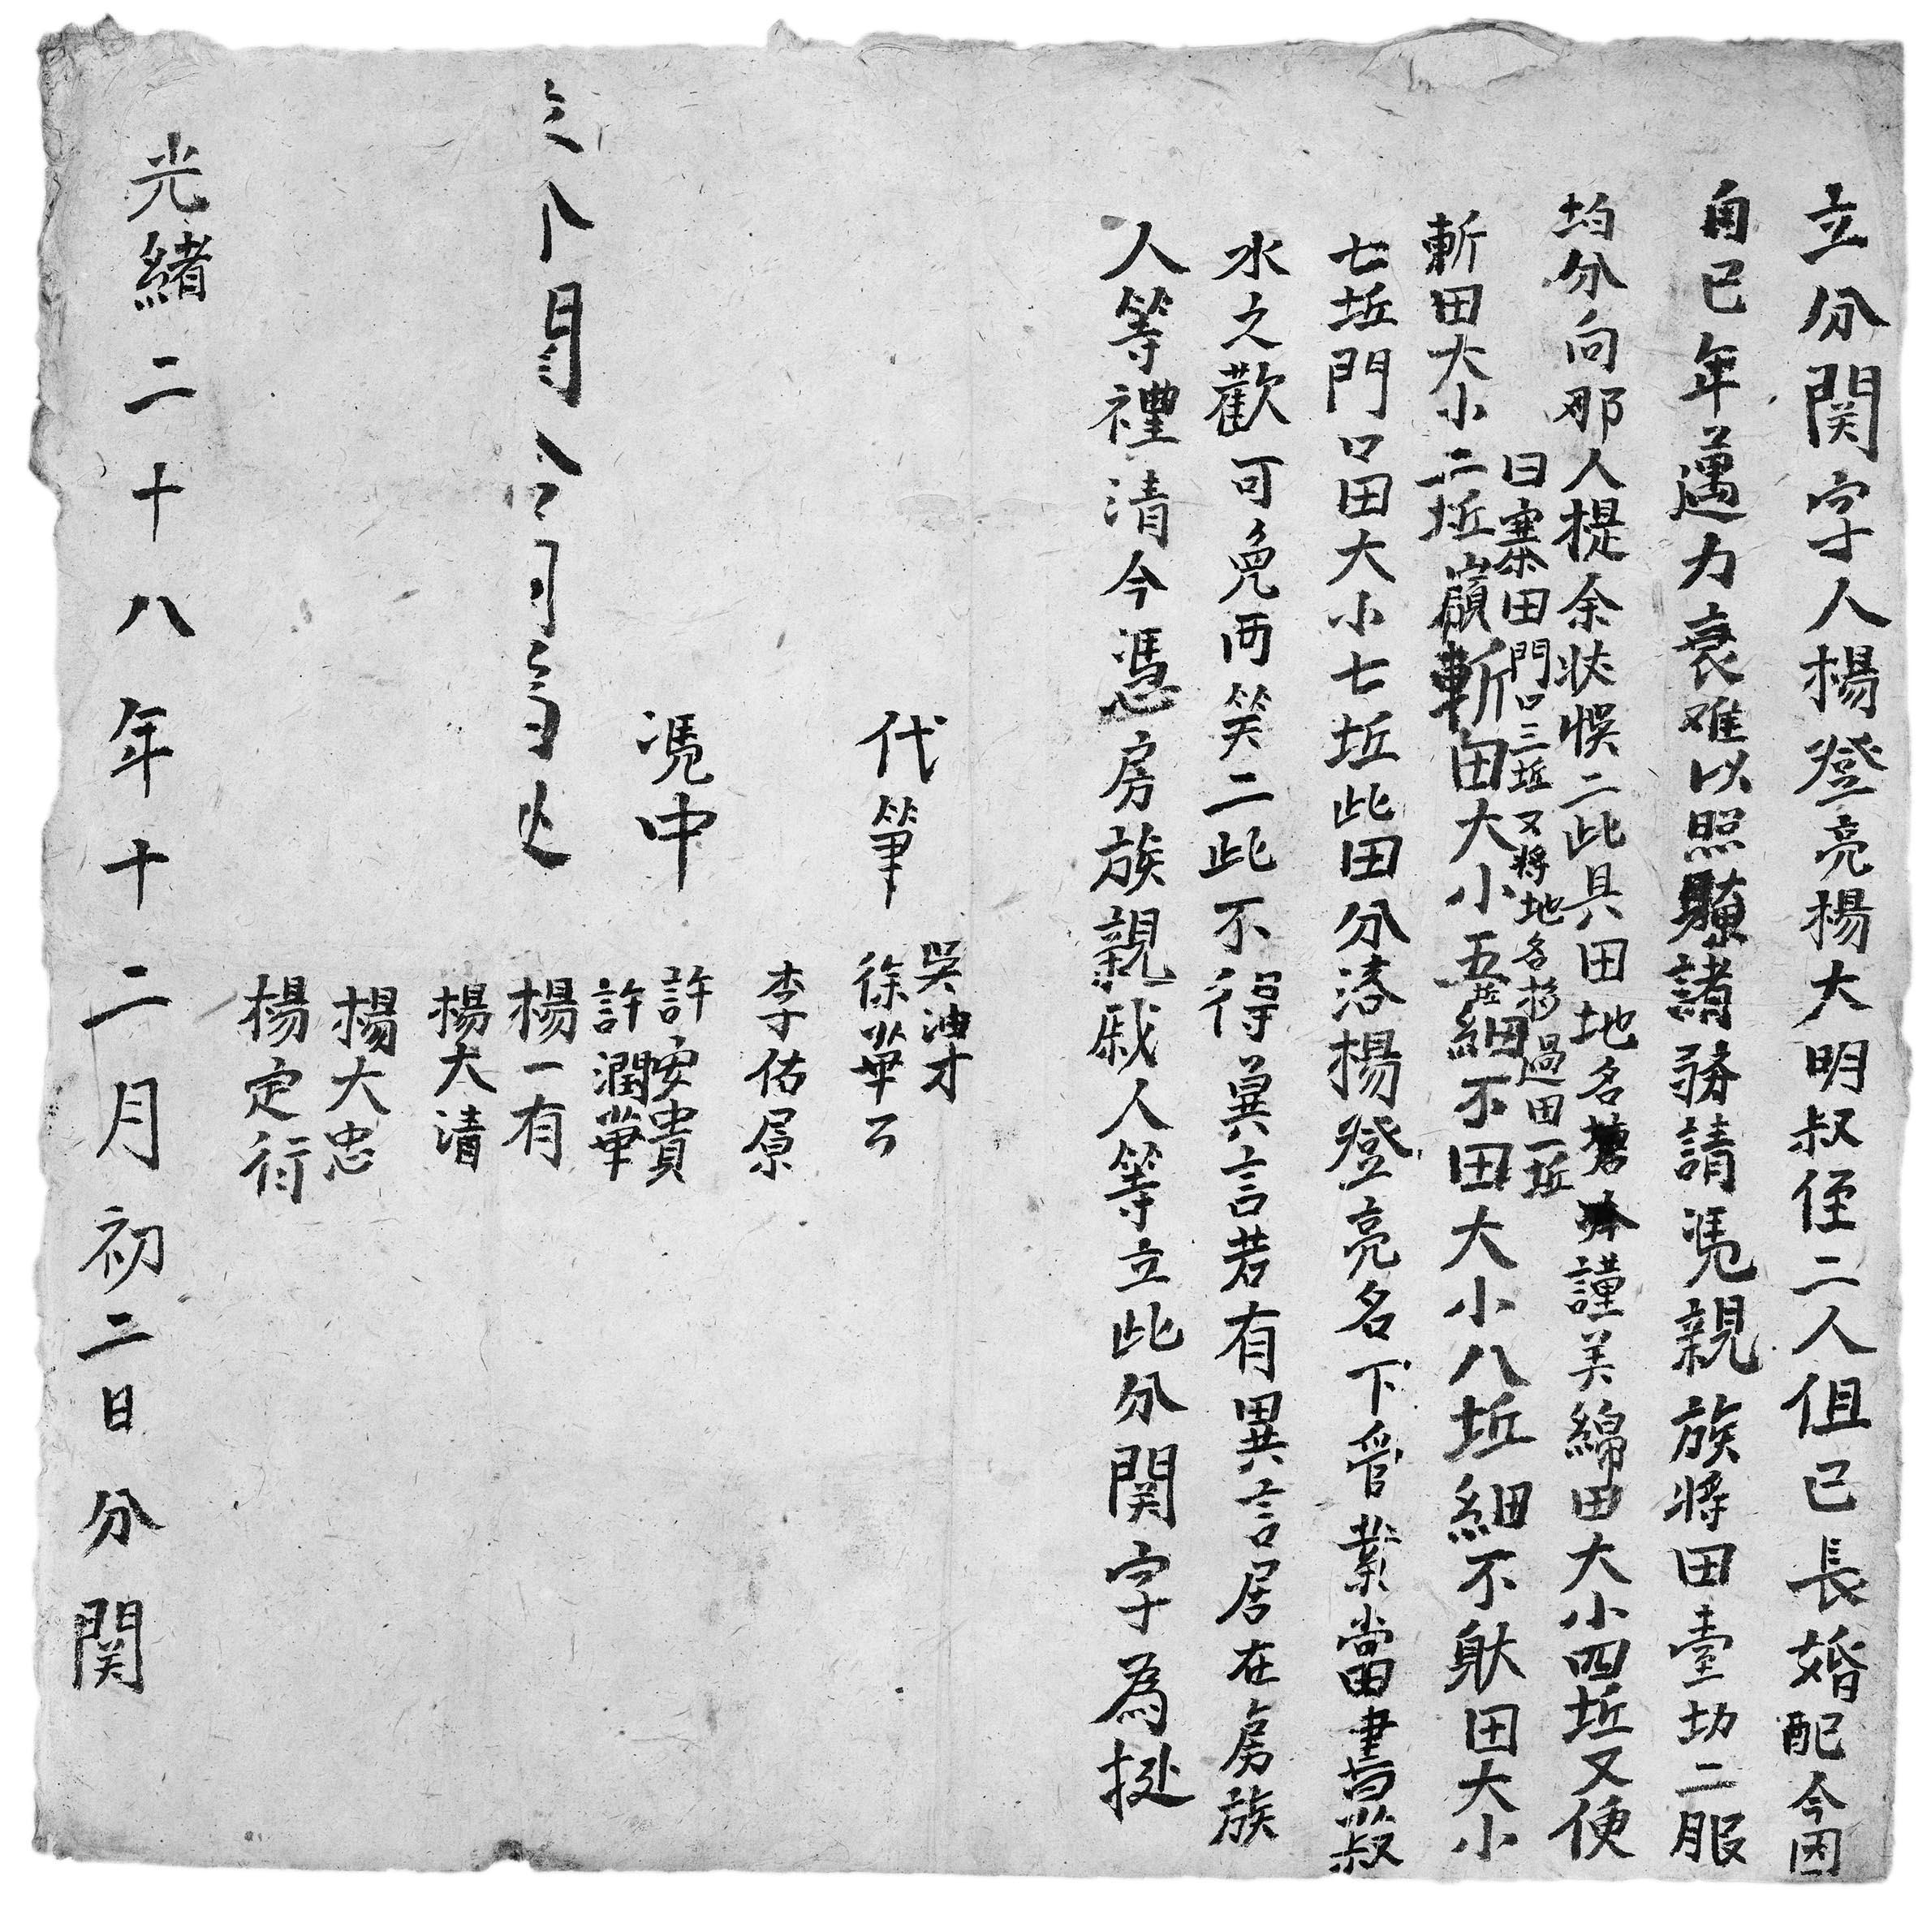 立分関字人楊登亮楊大明叔侄二人但已長婚配今因
自已年邁力衰难以照賖諸務請凴親族將田壹切二服
均分向那人提余状悞二此具田地名塘冲謹美綿田大小四坵又便
曰寨田門口三坵又將地名杉過田一坵
斬田大小二坵嶺斬田大小五坵細不田大小八坵細不㽵田大小
七坵門口田大小七坵此田分落楊登亮名下管業當書叔
水之歡可免两笑二此不得異言若有異言居在房族
人等禮清今憑房族親戚人等立此分関字為挻
吳沛才
代筆 徐華云
李佑屘
許安貴
凴中 許潤華
楊一有
楊大清
楊大忠
楊定衍
光緒二十八年十二月初二日分関